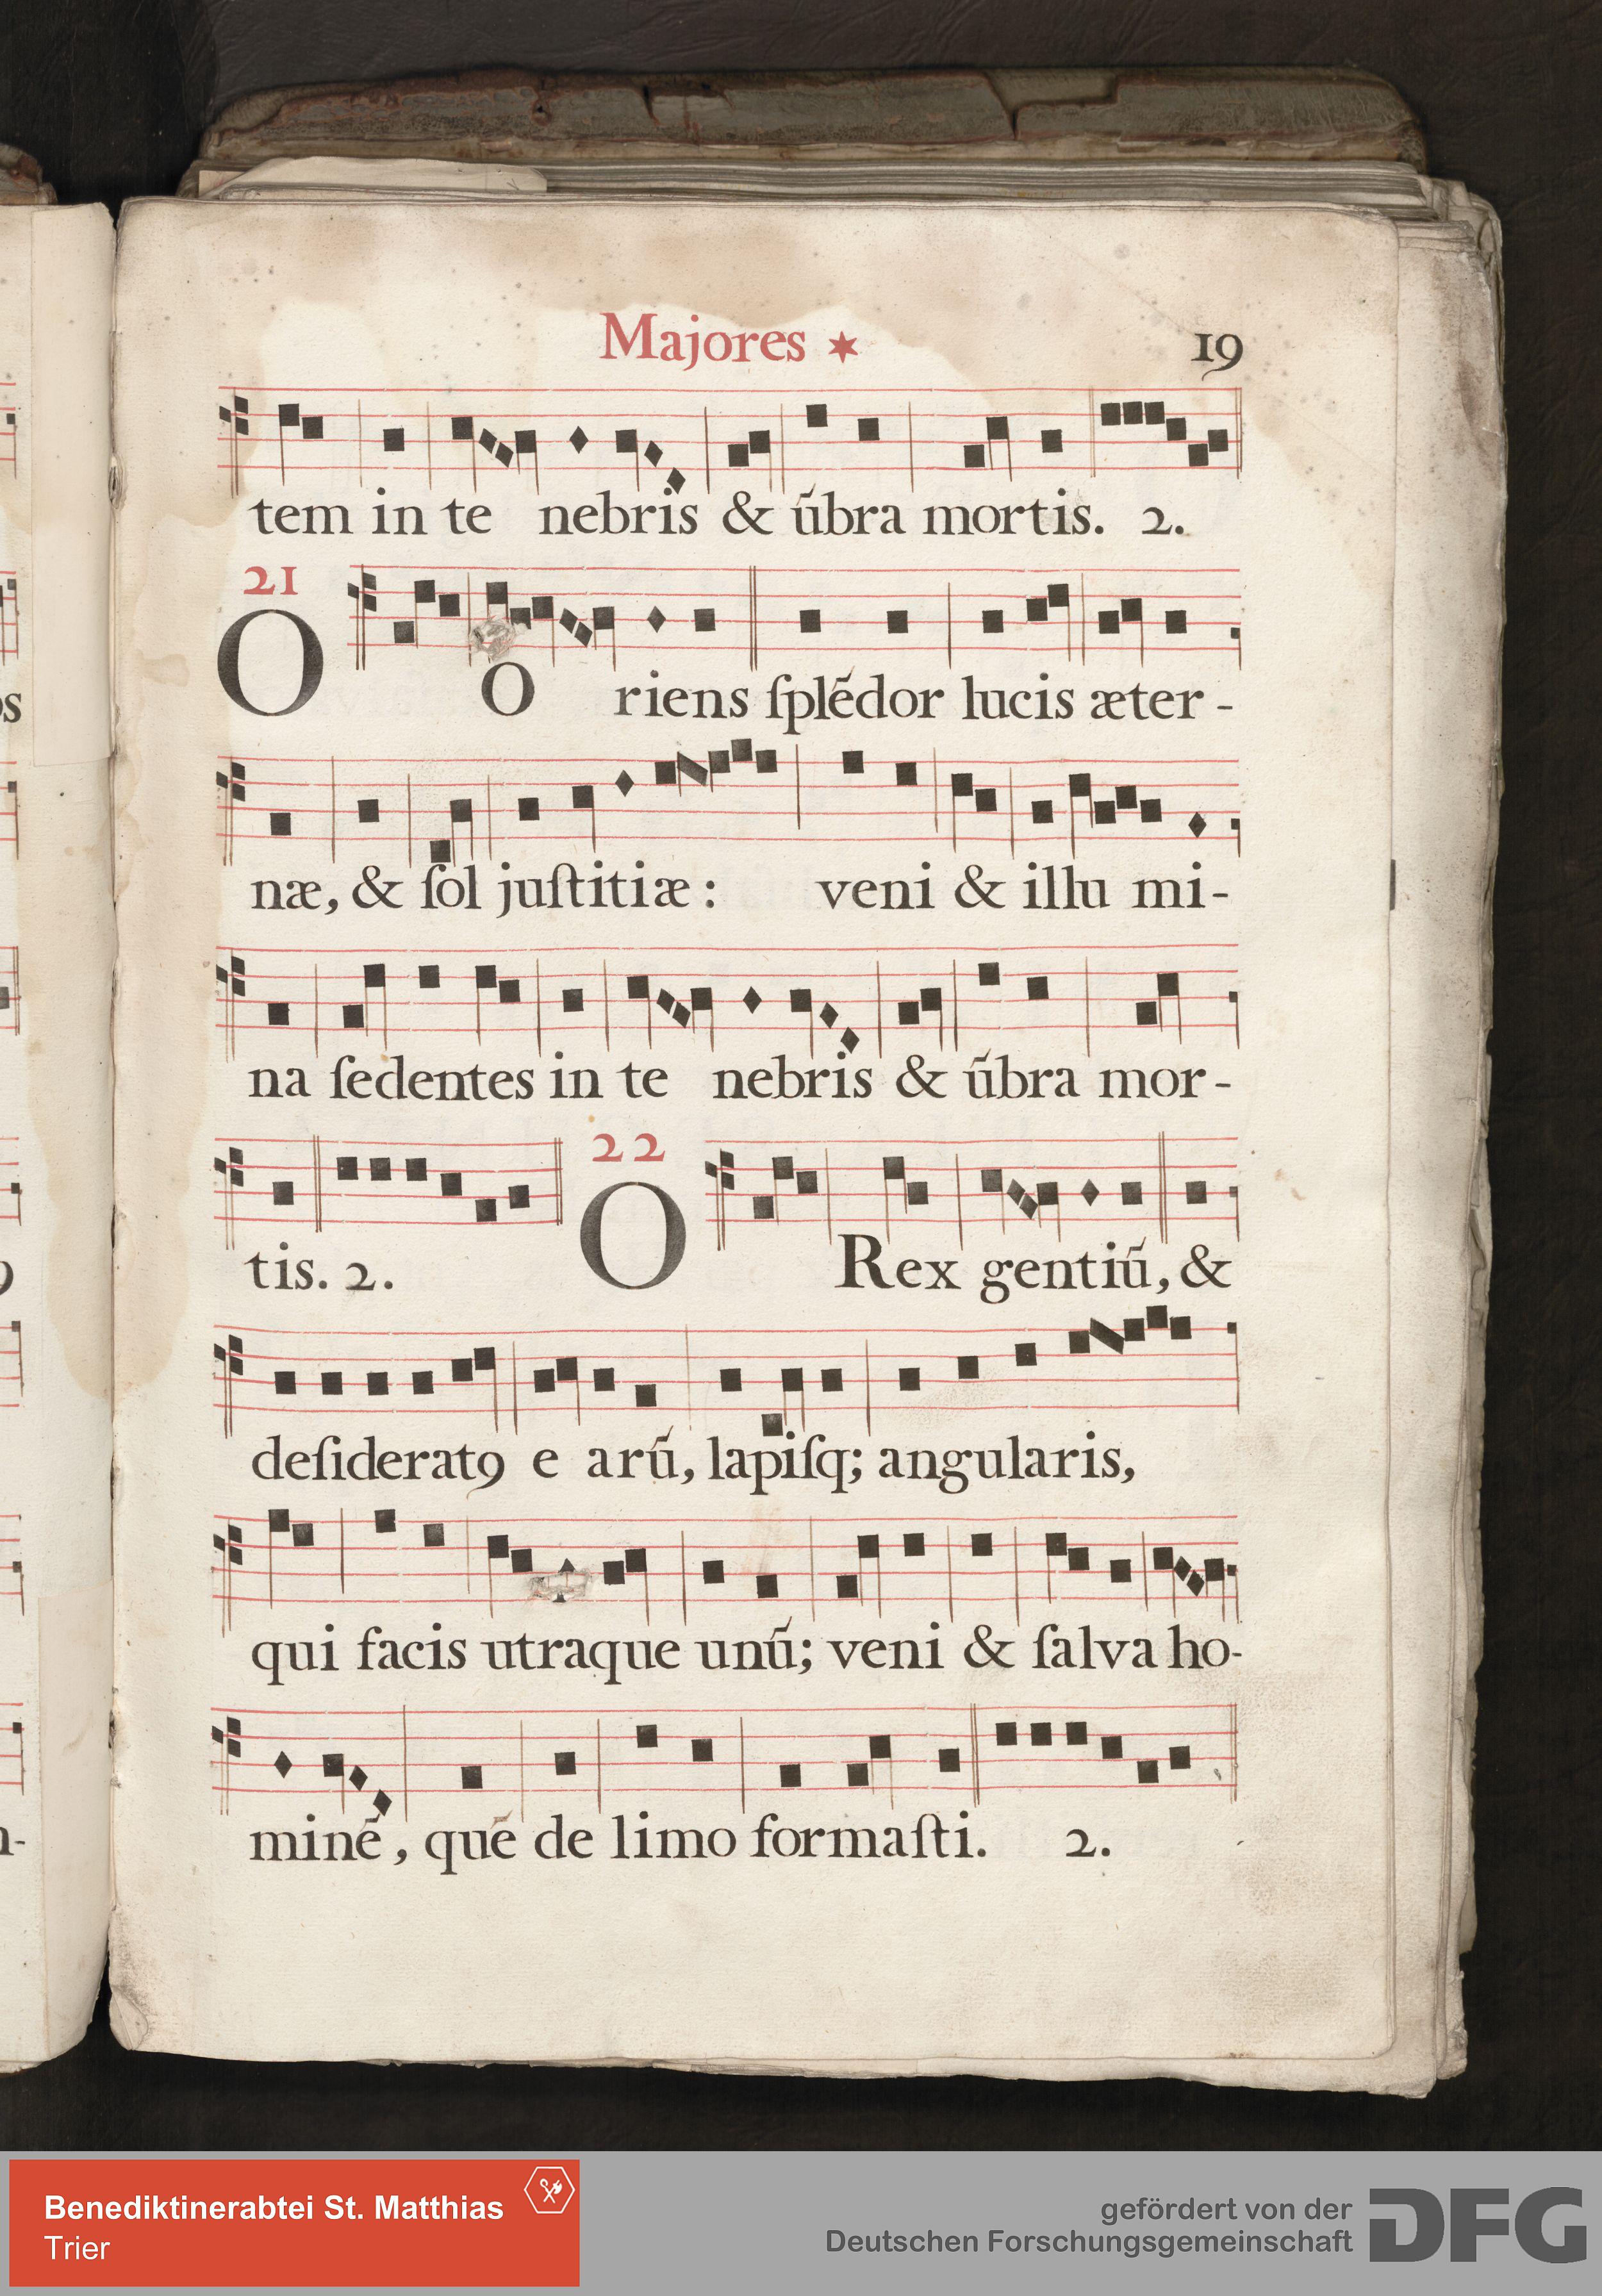 Majores ✶ 19
tem in te nebris & ũbra mortis. 2.
21
O O riens ſplẽdor lucis æter-
næ, & ſol juſtitiæ: veni & illu mi-
na ſedentes in te nebris & ũbra mor-
22
tis. 2. O Rex gentiũ, &
deſiderat9 e arũ, lapiſq; angularis,
qui facis utraque unũ; veni & ſalva ho-
minẽ, quẽ de limo formaſti. 2.
Benediktinerabtei St. Matthias
Trier
gefördert von der
Deutschen Forschungsgemeinschaft
DFG